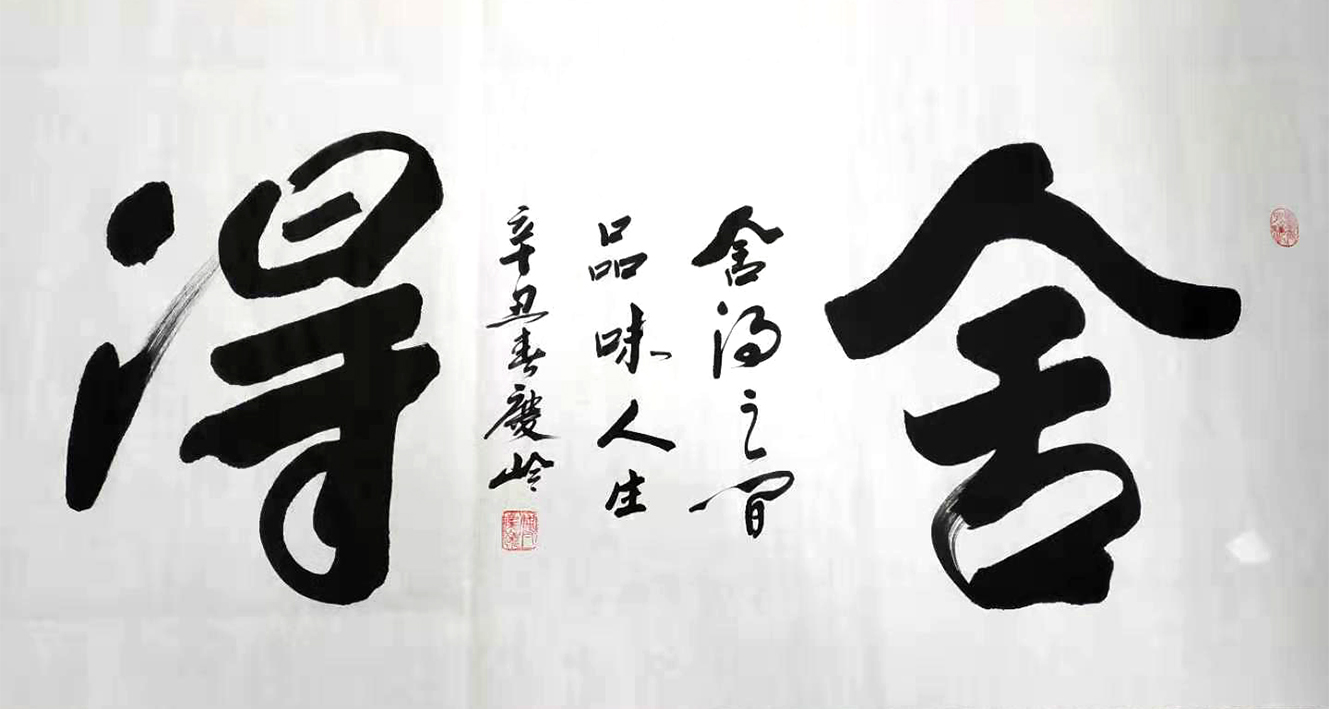 舍得
舍得之间
品味人生
辛丑春庆岭